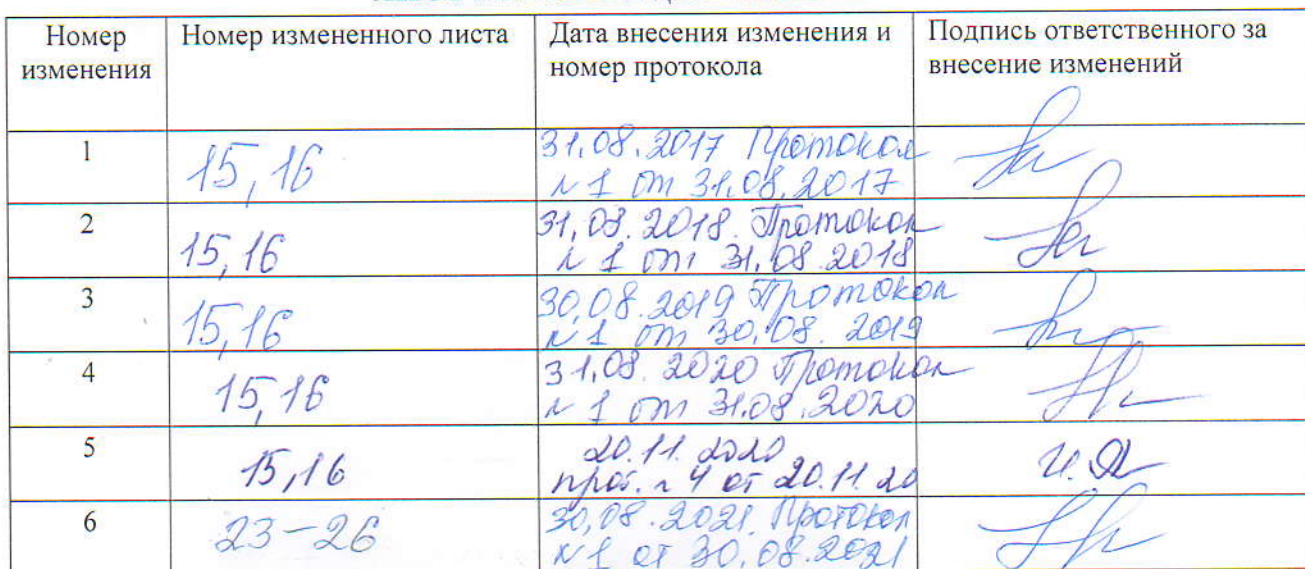 Номер изменения
Номер измененного листа
Дата внесения изменения и номер протокола
Подпись ответственного за внесение изменений
1
15, 16
31.08.2017 Протокол
№1 от 31.08.2017
2
15, 16
31.08.2018. Протокол
№1 от 31.08.2018
3
15, 16
30.08.2019 Протокол
№1 от 30.08.2019
4
15, 16
31.08.2020 Протокол
№1 от 31.08.2020
5
15, 16
20.11.2020
прот. №4 от 20.11.20
6
23-26
30.08.2021. Протокол
№1 от 30.08.2021